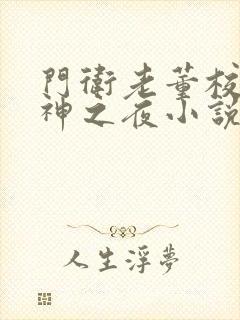 門衛老董校
神之夜小說
人生浮夢